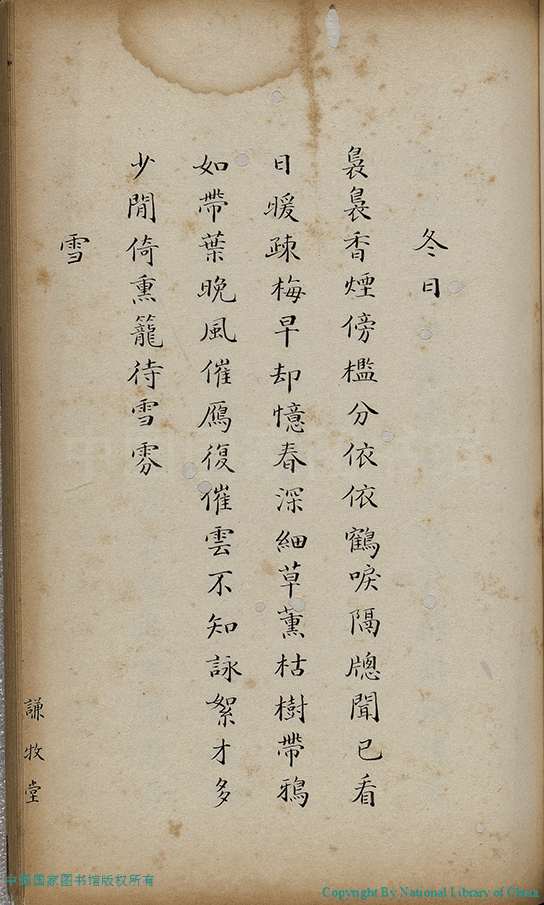 冬日
裊裊香煙傍檻分依依鶴唳隔牕聞已看
日暖疎梅早却憶春深細草薰枯樹帶鴉
如帶葉晚風催鴈復催雲不知詠絮才多
少閒倚熏籠待雪雰
雪
謙牧堂
中國国家图书馆版权所有
Copyright By National Library of China